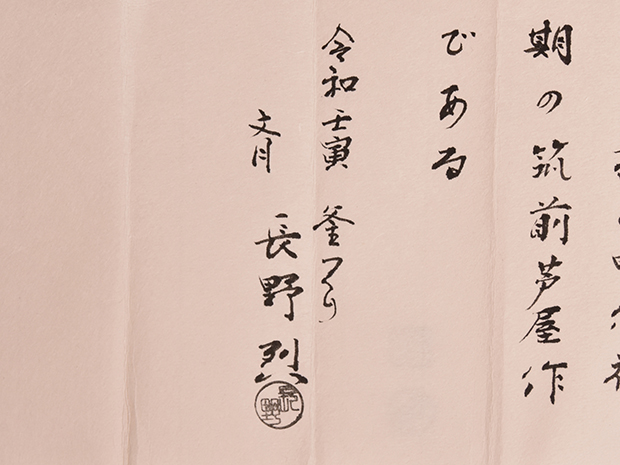 期の筑前芦屋作
である
令和壬寅 釜つくり
文月
長野烈